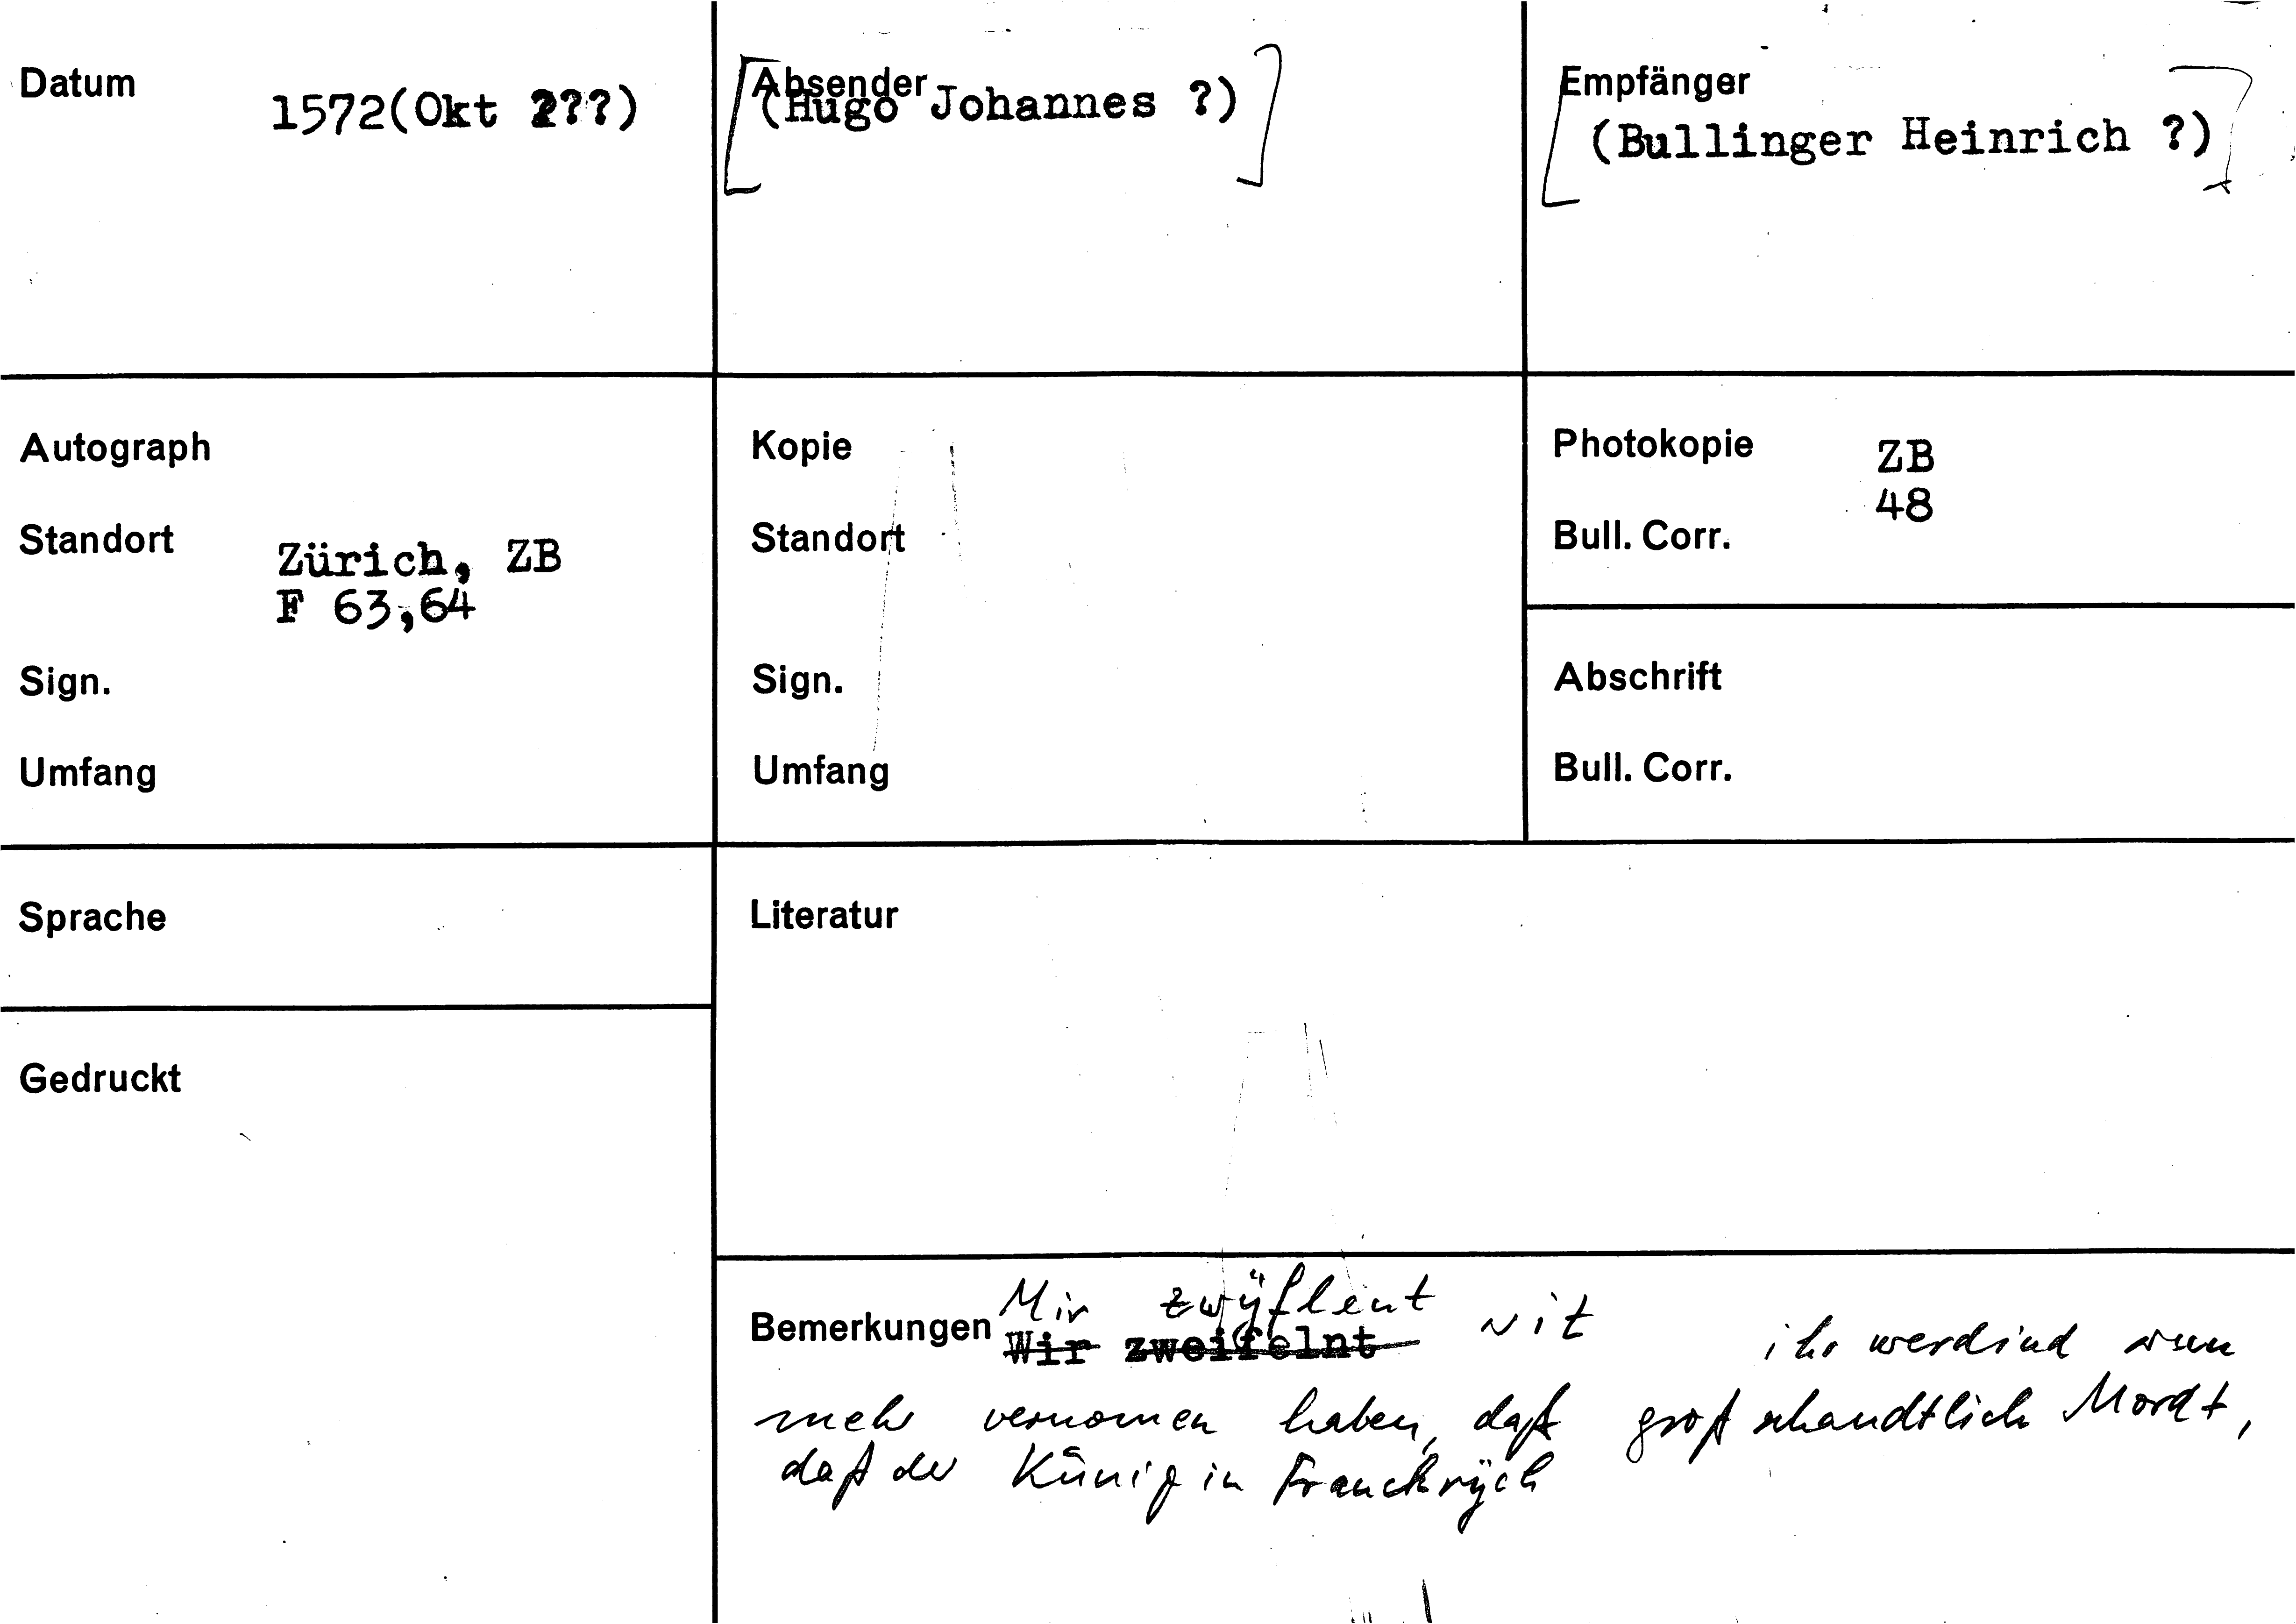 Datum
1572(Okt ???)
Absender
[(Hugo Johannes ?)]
Empfänger
[(Bullinger Heinrich ?)]
Autograph
Standort
Zürich, ZB
F 63,64
Sign.
Umfang
Kopie
Standort
Sign.
Umfang
Photokopie ZB
48
Bull. Corr.
Abschrift
Bull. Corr.
Sprache
Literatur
Gedruckt
Bemerkungen
Mir zwÿflent nit ihr werdind nun
Wir zweifelnt
mehr vernomen haben, daß groß schandtlich Mordt,
daß der Künig in Franckrÿch